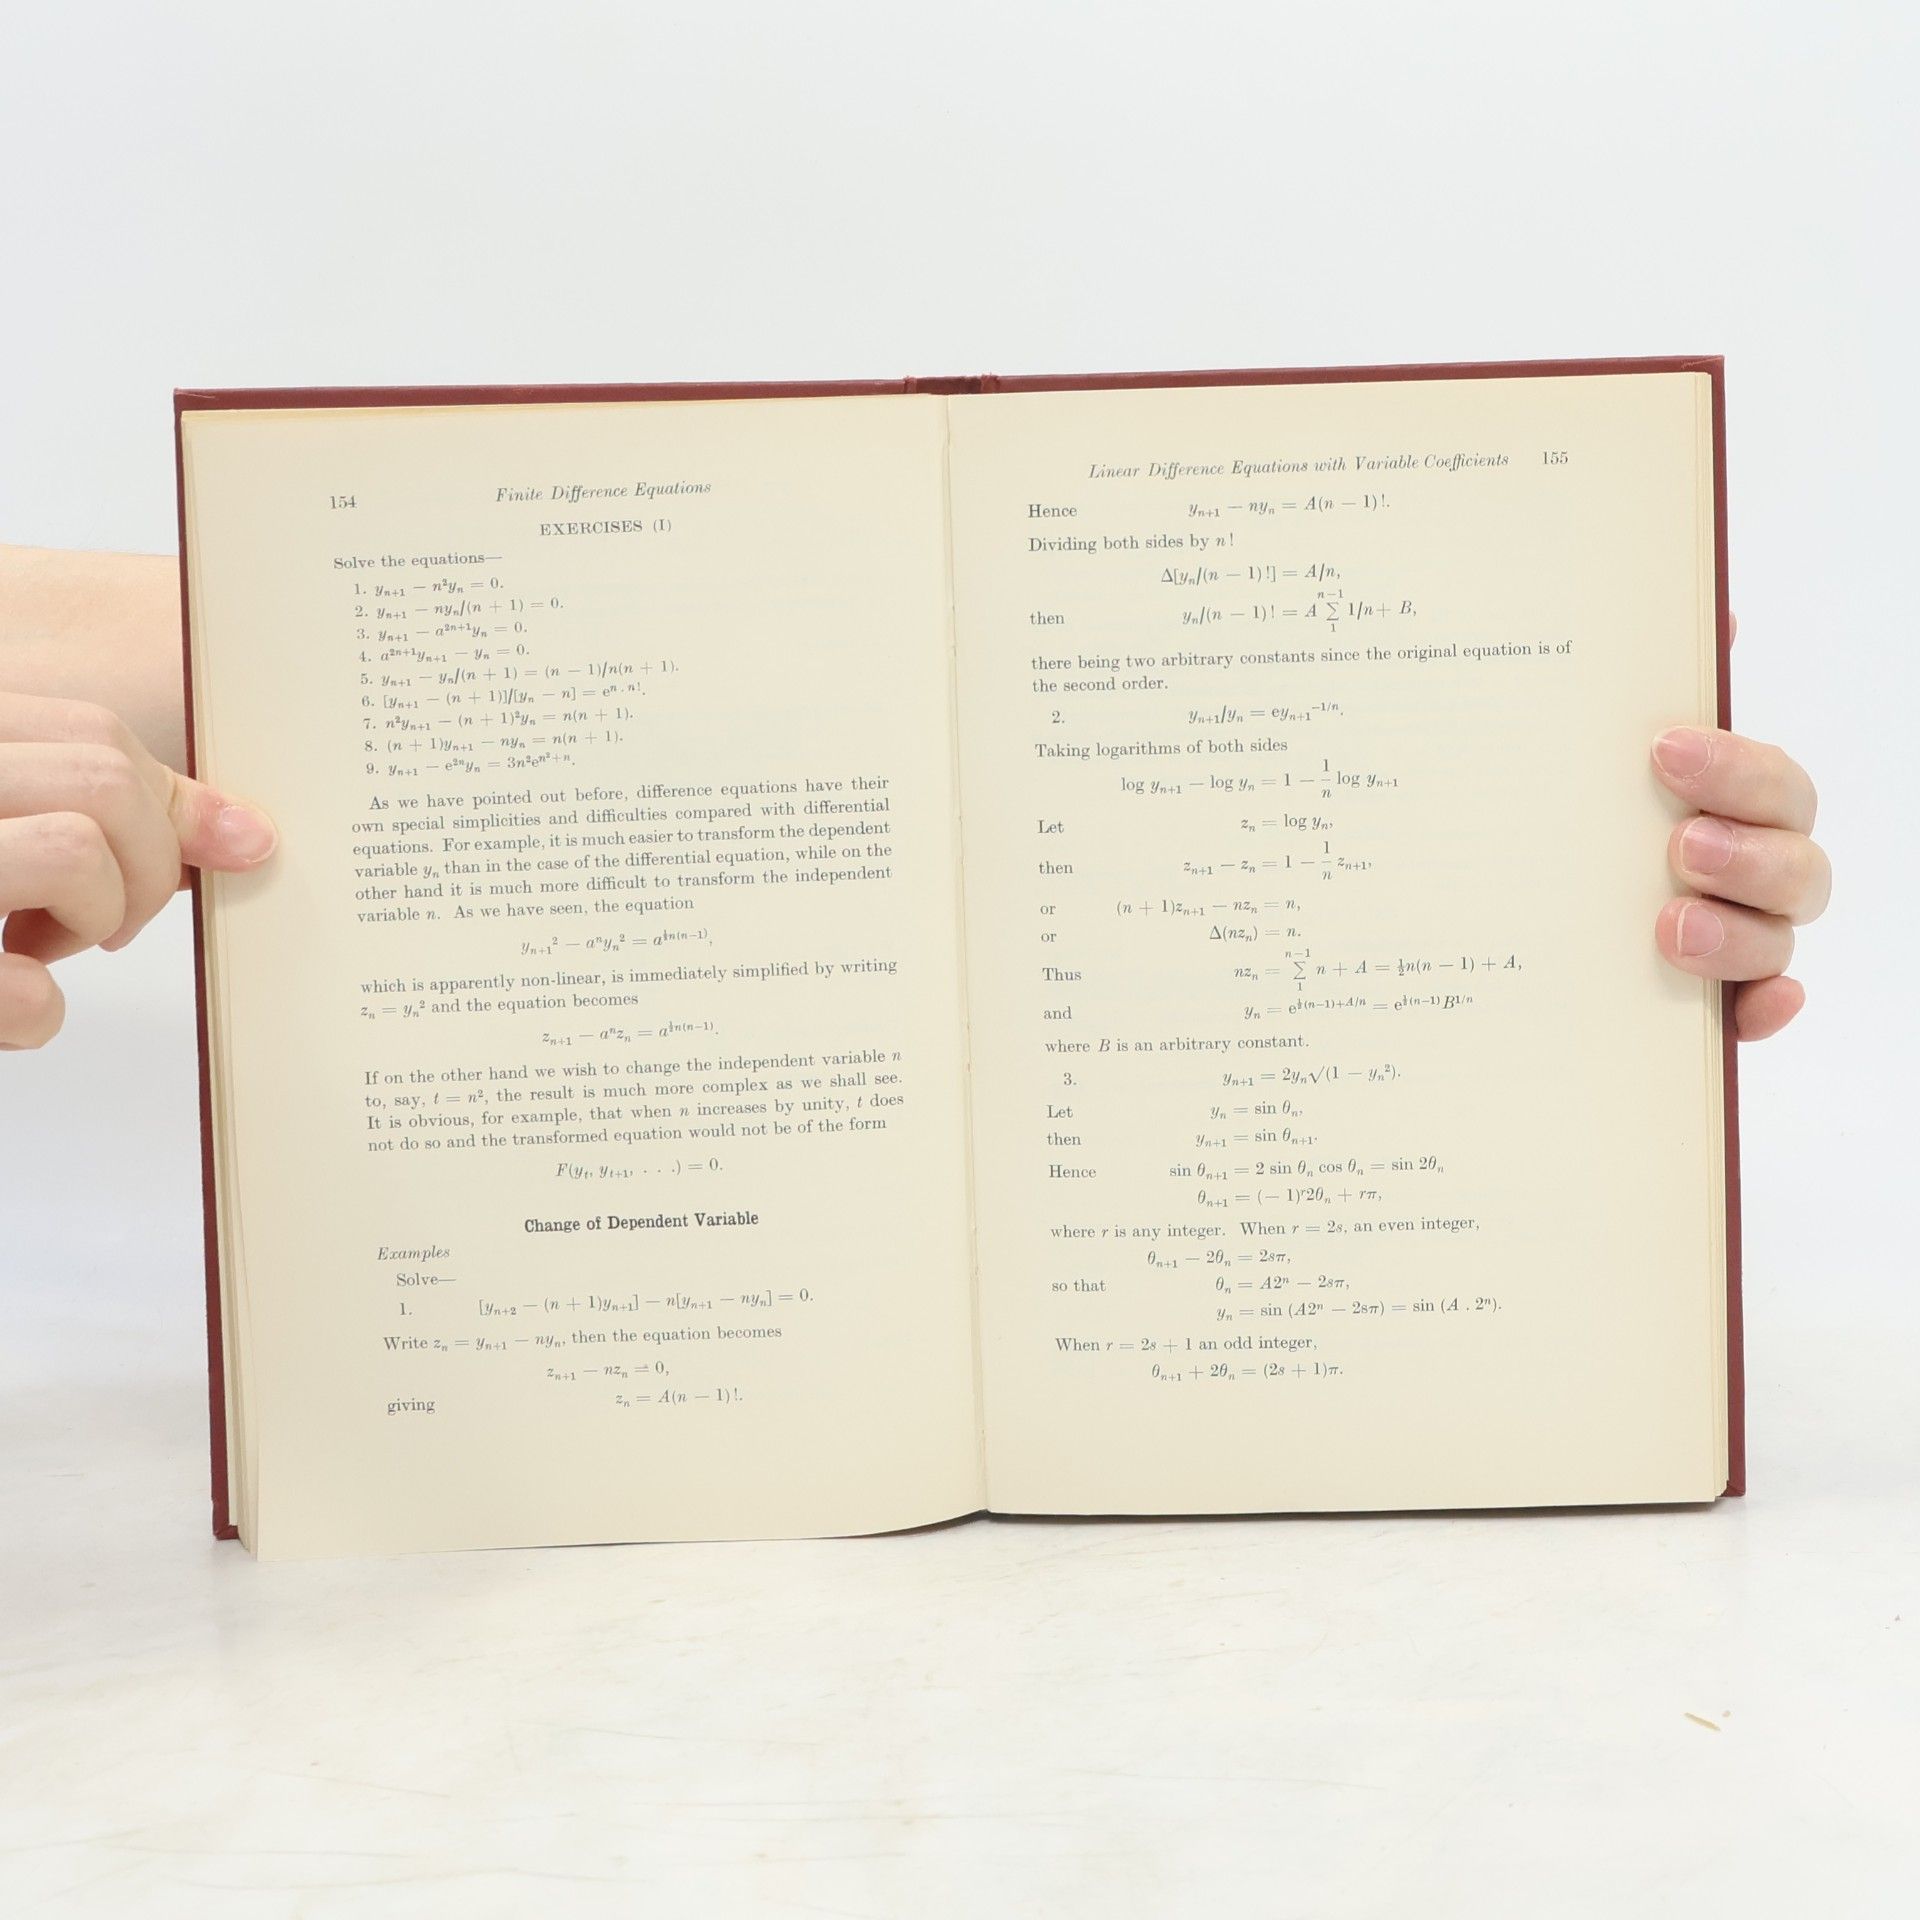 154
Finite Difference Equations
EXERCISES (I)
Solve the equations—
1. yₙ₊₁ − n²yₙ = 0.
2. yₙ₊₁ − nyₙ/(n + 1) = 0.
3. yₙ₊₁ − a²ⁿ⁺¹yₙ = 0.
4. a²ⁿ⁺¹yₙ₊₁ − yₙ = 0.
5. yₙ₊₁ − yₙ/(n + 1) = (n − 1)/n(n + 1).
6. [yₙ₊₁ − (n + 1)]/[yₙ − n] = e^{n . n!}.
7. n²yₙ₊₁ − (n + 1)²yₙ = n(n + 1).
8. (n + 1)yₙ₊₁ − nyₙ = n(n + 1).
9. yₙ₊₁ − e²ⁿyₙ = 3n²e^{n²+n}.
As we have pointed out before, difference equations have their
own special simplicities and difficulties compared with differential
equations. For example, it is much easier to transform the dependent
variable yₙ than in the case of the differential equation, while on the
other hand it is much more difficult to transform the independent
variable n. As we have seen, the equation
yₙ₊₁² − aⁿyₙ² = a^{½n(n−1)},
which is apparently non-linear, is immediately simplified by writing
zₙ = yₙ² and the equation becomes
zₙ₊₁ − aⁿzₙ = a^{½n(n−1)}.
If on the other hand we wish to change the independent variable n
to, say, t = n², the result is much more complex as we shall see.
It is obvious, for example, that when n increases by unity, t does
not do so and the transformed equation would not be of the form
F(yₜ, yₜ₊₁, . . .) = 0.
Change of Dependent Variable
Examples
Solve—
1. [yₙ₊₂ − (n + 1)yₙ₊₁] − n[yₙ₊₁ − nyₙ] = 0.
Write zₙ = yₙ₊₁ − nyₙ, then the equation becomes
zₙ₊₁ − nzₙ = 0,
giving zₙ = A(n − 1)!.
Linear Difference Equations with Variable Coefficients 155
Hence yₙ₊₁ − nyₙ = A(n − 1)!.
Dividing both sides by n!
Δ[yₙ/(n − 1)!] = A/n,
then yₙ/(n − 1)! = A Σ₁ⁿ⁻¹ 1/n + B,
there being two arbitrary constants since the original equation is of
the second order.
2. yₙ₊₁/yₙ = eyₙ₊₁^{−1/n}.
Taking logarithms of both sides
log yₙ₊₁ − log yₙ = 1 − 1/n log yₙ₊₁
Let zₙ = log yₙ,
then zₙ₊₁ − zₙ = 1 − 1/n zₙ₊₁,
or (n + 1)zₙ₊₁ − nzₙ = n,
or Δ(nzₙ) = n.
Thus nzₙ = Σ₁ⁿ⁻¹ n + A = ½n(n − 1) + A,
and yₙ = e^{½(n−1)+A/n} = e^{½(n−1)}B^{1/n}
where B is an arbitrary constant.
3. yₙ₊₁ = 2yₙ√(1 − yₙ²).
Let yₙ = sin θₙ,
then yₙ₊₁ = sin θₙ₊₁.
Hence sin θₙ₊₁ = 2 sin θₙ cos θₙ = sin 2θₙ
θₙ₊₁ = (− 1)ʳ2θₙ + rπ,
where r is any integer. When r = 2s, an even integer,
θₙ₊₁ − 2θₙ = 2sπ,
so that θₙ = A2ⁿ − 2sπ,
yₙ = sin (A2ⁿ − 2sπ) = sin (A . 2ⁿ).
When r = 2s + 1 an odd integer,
θₙ₊₁ + 2θₙ = (2s + 1)π.